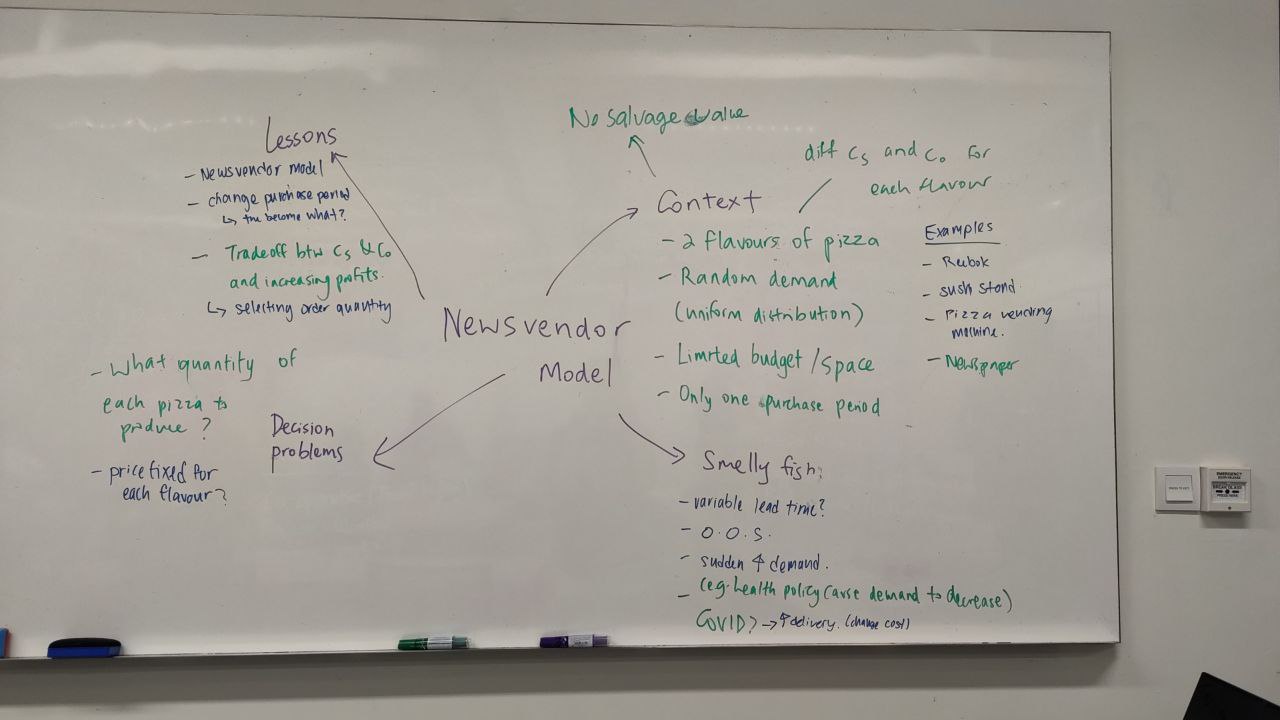 Newsvendor
Model
Lessons
- Newsvendor model
- change purchase period
↳ the become what?
- Tradeoff btw Cs & Co
and increasing profits.
↳ selecting order quantity
No salvage value
Context
diff Cs and Co for
each flavour
- 2 flavours of pizza
- Random demand
(uniform distribution)
- Limited budget / space
- Only one purchase period
Examples
- Reebok
- sushi stand.
- Pizza vending
machine.
- Newspaper
Decision
problems
- What quantity of
each pizza to
produce?
- price fixed for
each flavour?
Smelly fish:
- variable lead time?
- O.O.S.
- sudden ↑ demand.
- (eg. health policy cause demand to decrease)
COVID? → ↑ delivery. (change cost)
EMERGENCY
BREAK GLASS
PRESS HERE